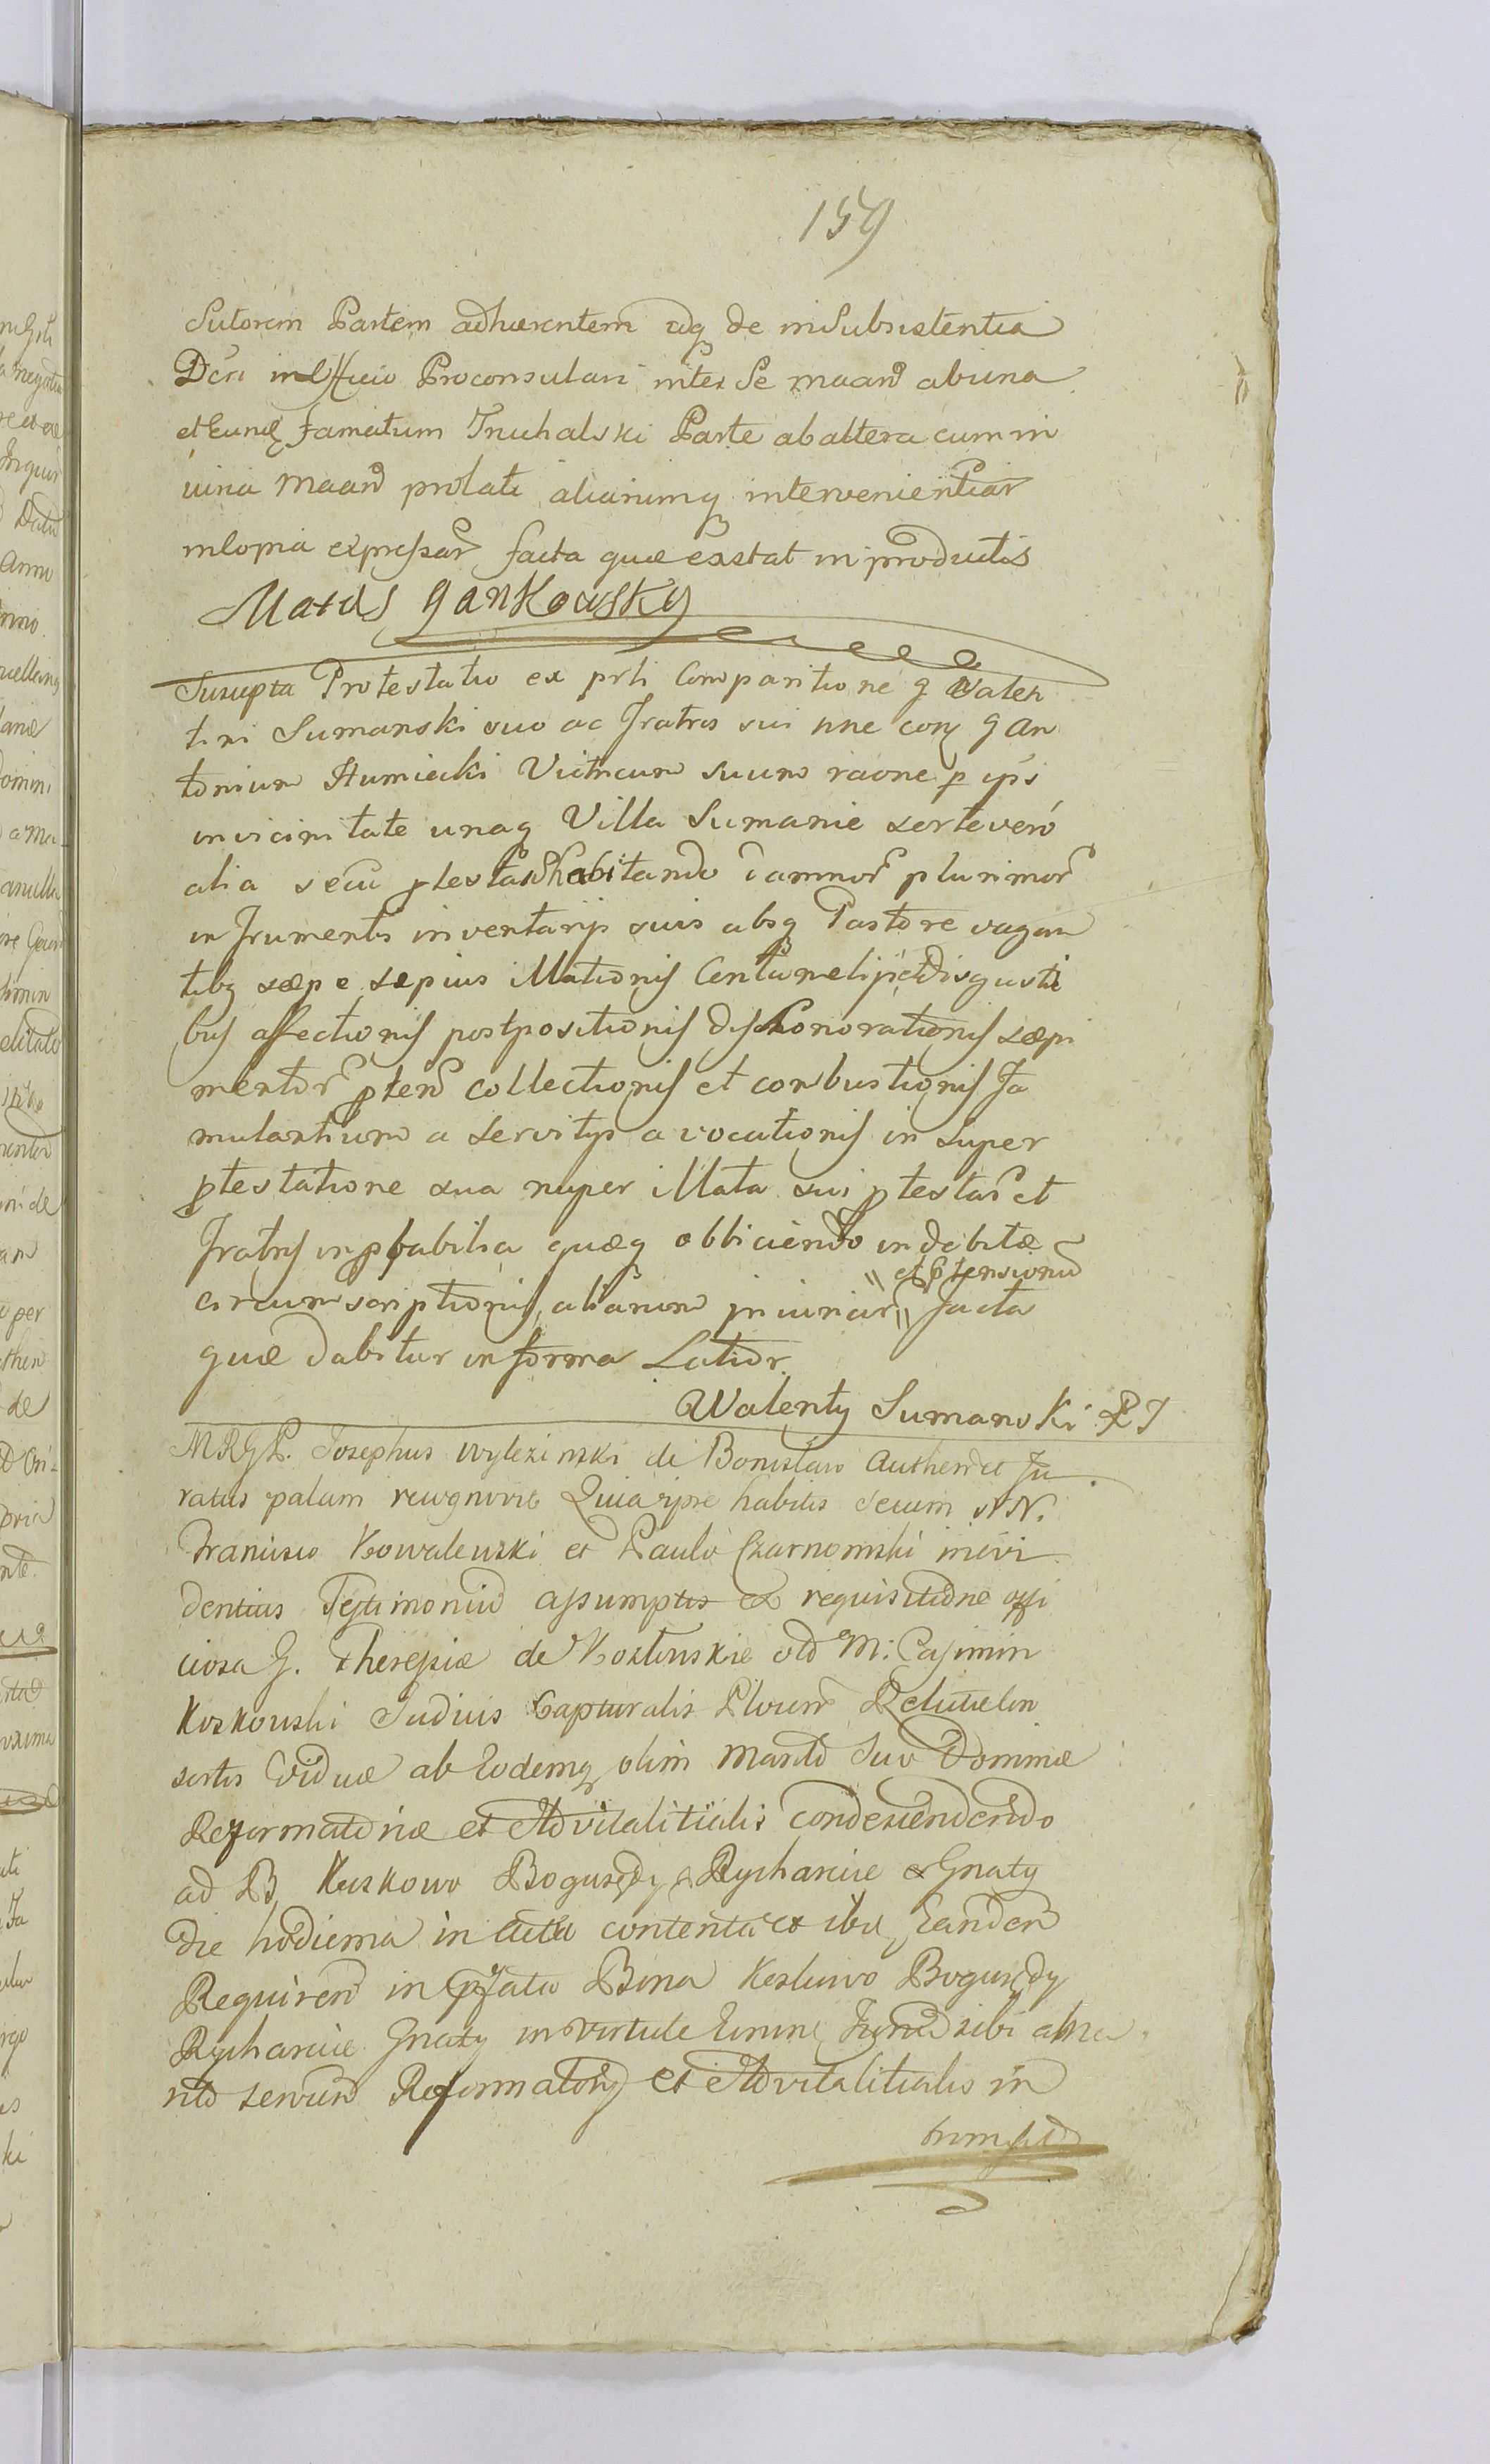 159
Sutorem Partem adhærentem atq de insubsistentia
Dcri in Officio Proconsulari inter Se maand ab una
et Eundē famatum Truchalski Parte ab altera cum in
iuria maand prolati aliarumq intervenientiar
in Copia expressar facta quæ exstat in productis
Mateus Jankowsky
Suscepta Protestatio ex prsti Comparitione g Valen
tini Sumanski suo ac Fratris sui nne con g An
tonium Humięcki Victricum suum raone p ips
in vicinitate unaq Villa Sumanie sorte vero
alia secū ptestan habitando damnor plurimor
in frumentis inventarijs suis absq Pastore vagan
tibq sæpe sæpius illationis Contumelijs et Disgusti
bus affectionis postpositionis dishonorationis sæpi
mentor ptend collectionis et combustionis Fa
mulantium a servitijs avocationis in super
ptestatione sua nuper illata sui ptestan et
Fratris inpbabilia quæq obbiciendo indebitæ
et Ptensionū
circumscriptionis, aliarum iniuriar facta
quæ dabitur in forma Latior.
Walenty Sumanski P J
MRGPL. Josephus Wylezinski de Bonislaw Authend et Ju
ratus palam recognovit Quia ipse habitis secum NN.
Francisco Kowalewski et Paulo Czarnomski in evi
dentius Testimoniū assumptis ex requisitione offi
ciosa G. Theresiæ de Kozłowskie old M: Casimiri
Koskowski Judicis Capturalis Plocen Relictæ con
sortis Viduæ ab Eodemq olim Marito Suo Dominæ
Reformatoriæ et Advitalitialis condescendendo
ad B Kuskowo Bogusędy Rycharcice et Gnaty
die hodierna in acta contenta et ibi Eandem
Requiren in pfata Bona Koskowo Bogusędy
Rycharcice Gnaty in virtute sibi a Ma
rito servien Reformatorij et Advitalitialis in